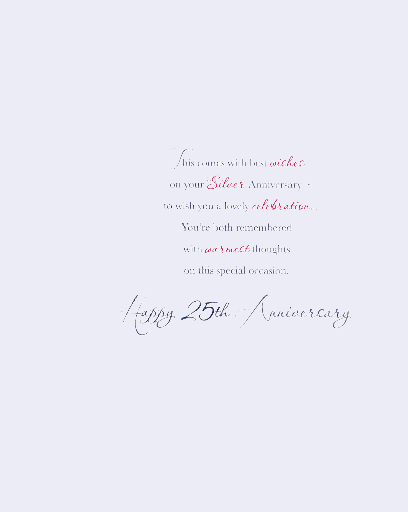 This comes with best wishes
on your Silver Anniversary -
to wish you a lovely celebration.
You're both remembered
with warmest thoughts
on this special occasion.
Happy 25th Anniversary